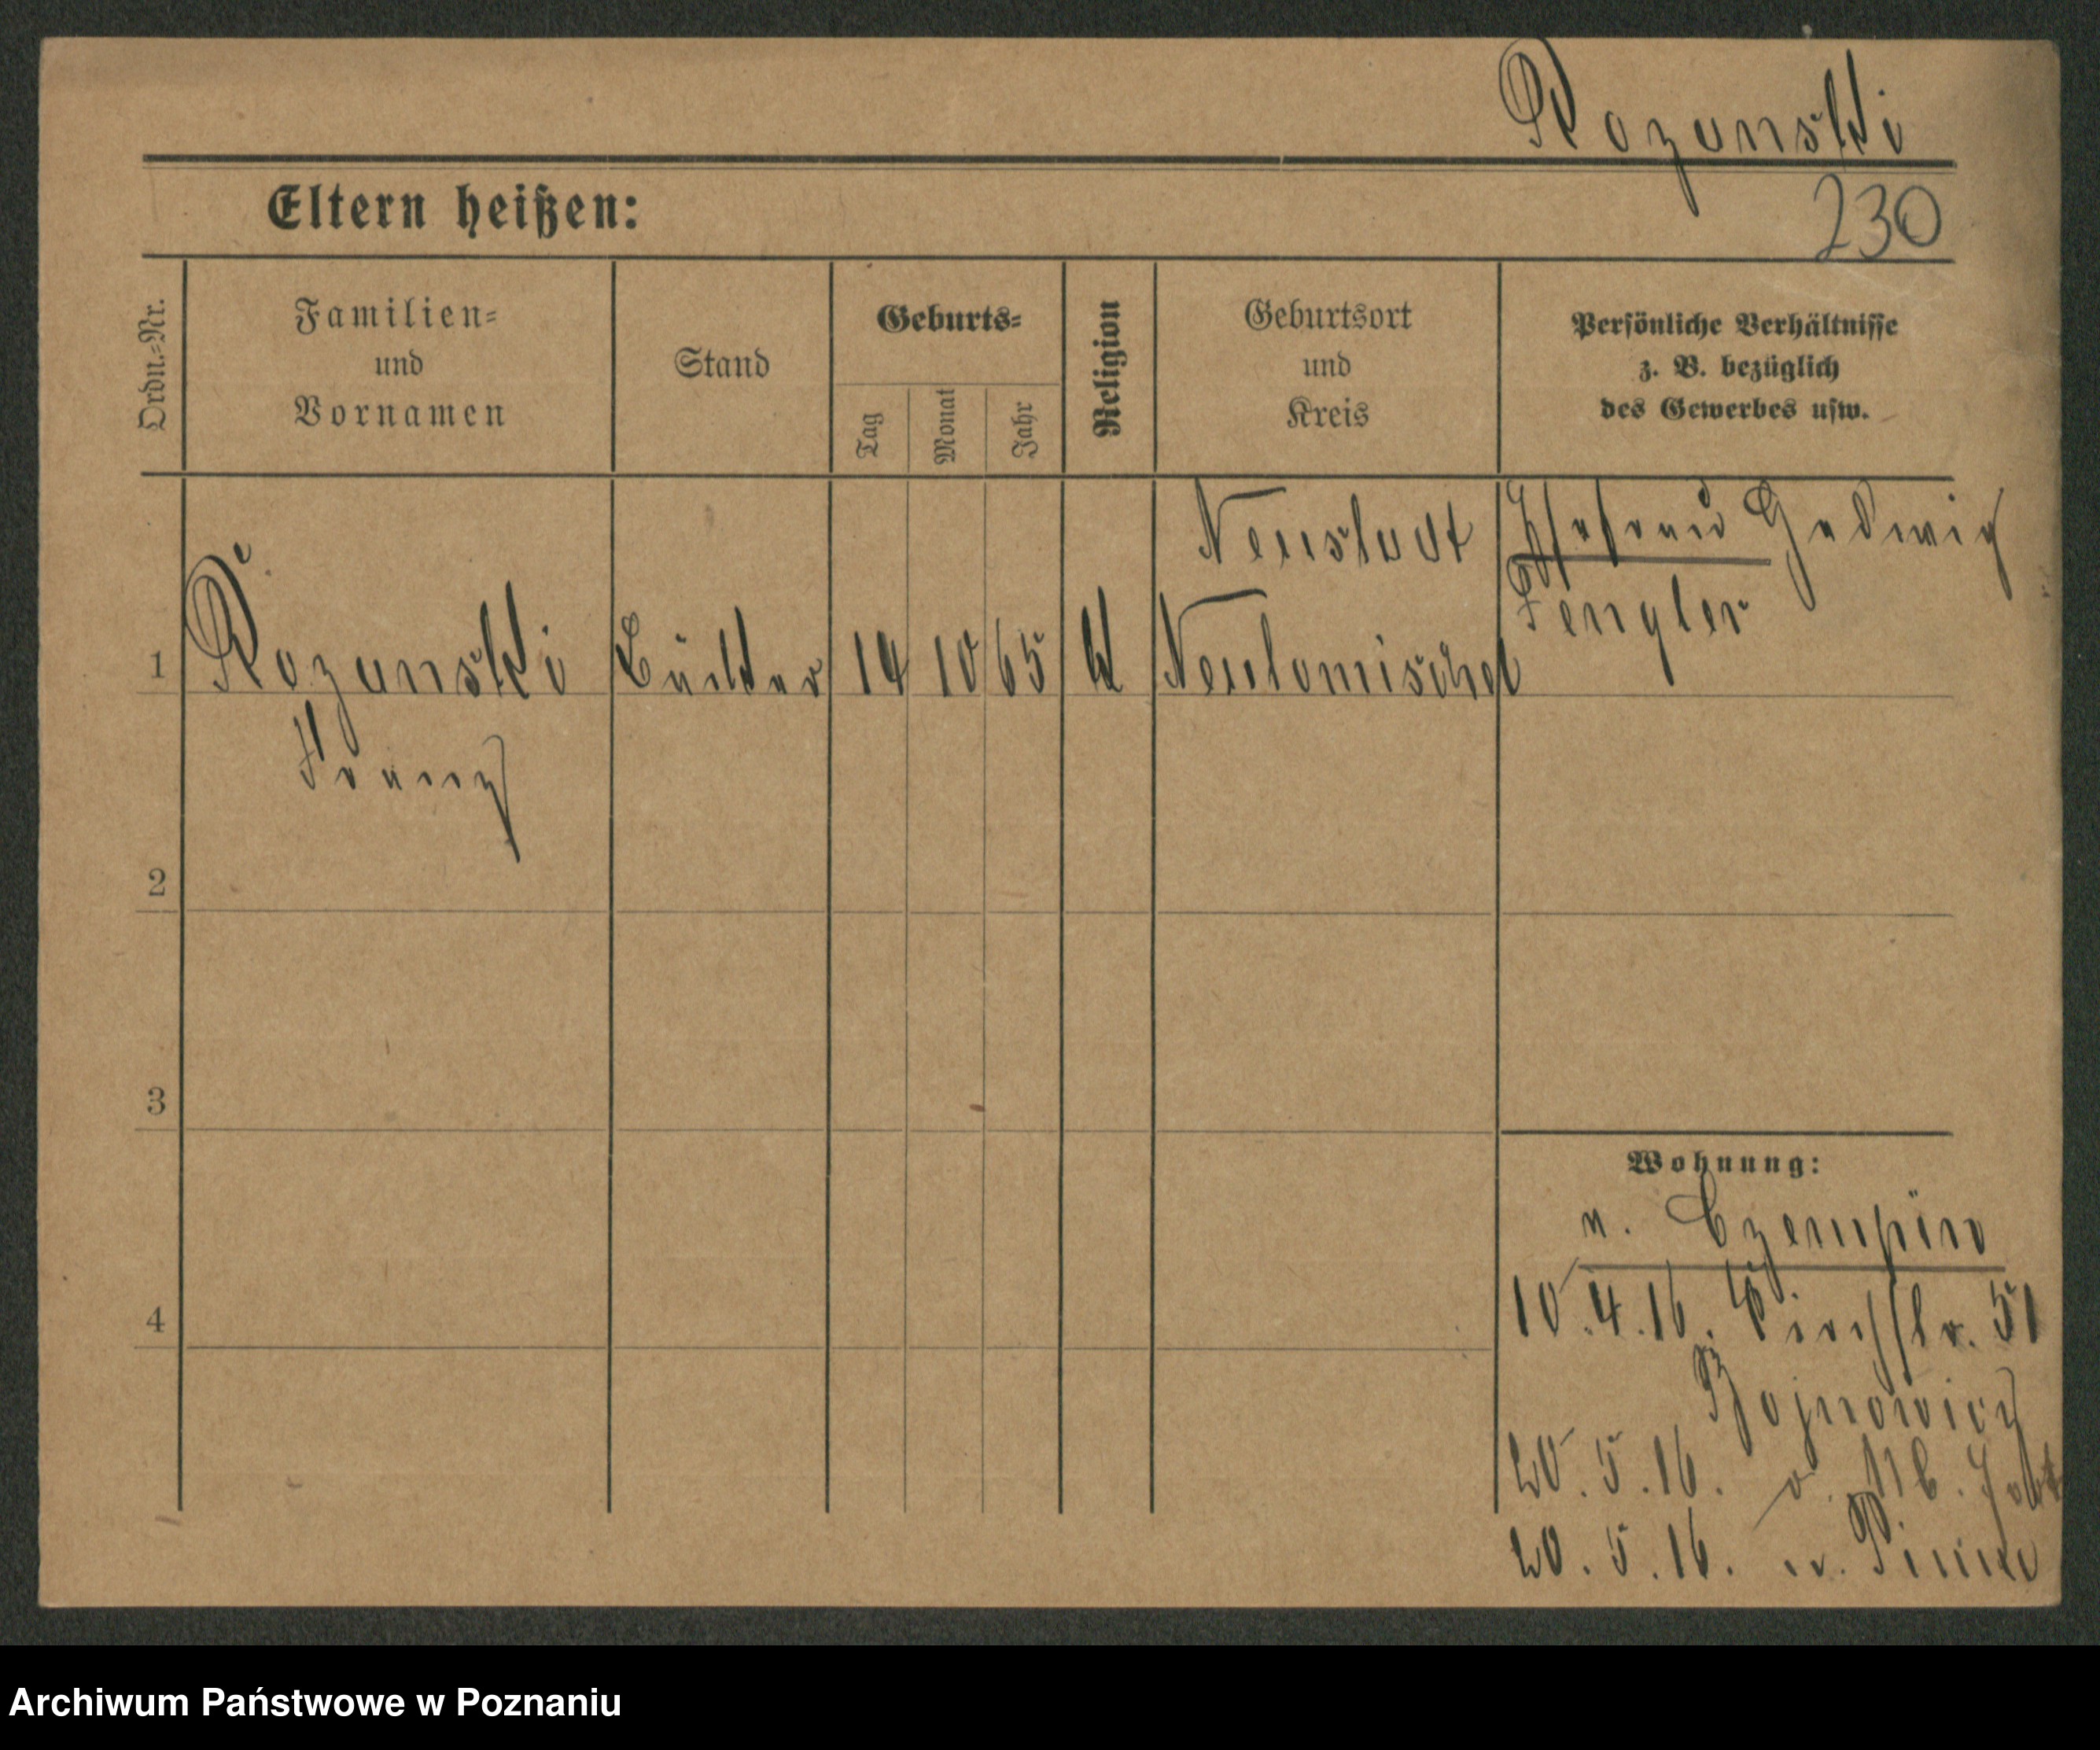 Rozanski
230
Eltern heißen:
Ordn.=Nr.
Familien=
und
Vornamen
Stand
Geburts=
Tag
Monat
Jahr
Religion
Geburtsort
und
Kreis
Persönliche Verhältnisse
z. B. bezüglich
des Gewerbes usw.
Neustadt
Ehefrau Hedwig
Fengler
1
Rozanski
14 10 65
k
Neutomischel
Franz
2
3
Wohnung:
v. Czempin
10.4.16.
51
4
20.5.16.
20.5.16. n. Pinne
Archiwum Państwowe w Poznaniu